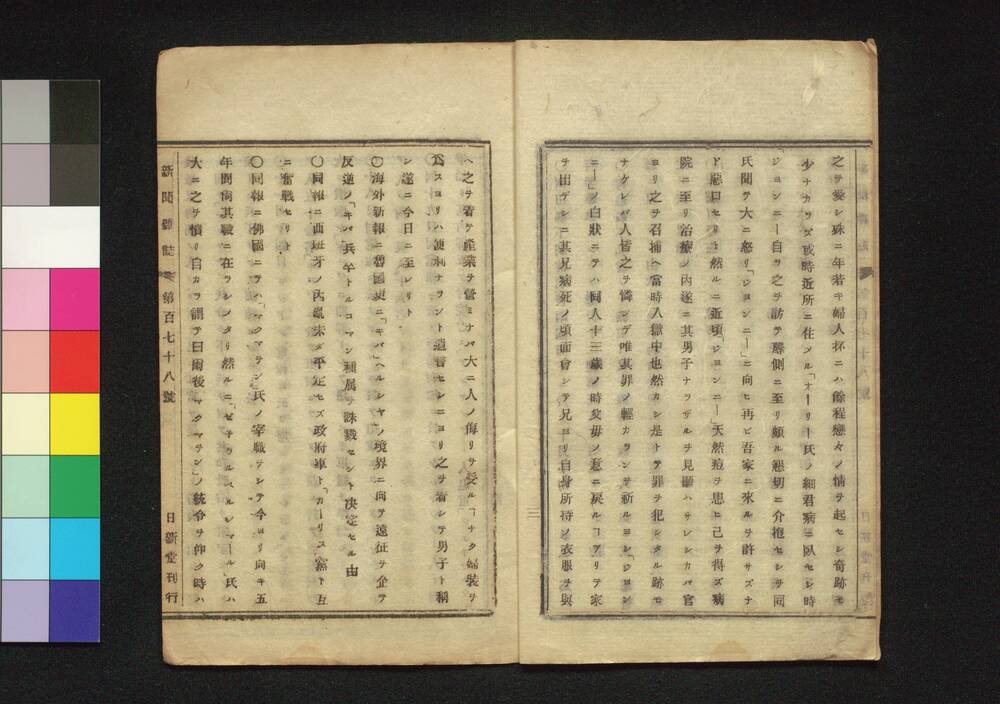 之ヲ愛シ殊ニ年若キ婦人抔ニハ餘程戀々ノ情ヲ起セシ奇跡モ
少ナカラズ或時近所ニ住メル「オーリー氏ノ細君病ニ臥セシ時
「ジョンニー」自ラ之ヲ訪テ牀側ニ至リ頗ル懇切ニ介抱セシヲ同
氏聞ヲ大ニ怒リ「ジョンニー」ニ向ヒ再ビ吾家ニ來ルヲ許サズナ
ド惡口セリト然ルニ近頃「ジョンニー」天然痘ヲ患ヒ已ヲ得ズ病
院ニ至リ治療ノ内遂ニ其男子ナラザルヲ見顯ハサレシカバ官
ヨリ之ヲ召捕ヘ當時入獄中也然カシ是トテ罪ヲ犯シタル跡モ
ナケレバ人皆之ヲ憐ンデ唯其罪ノ輕カランヲ祈ルヨシ「ジョン
ニー」ノ白狀ニテハ同人十三歳ノ時父毋ノ意ニ戻ルヿアリテ家
ヲ出デシニ其兄病死ノ頃面會シテ兄ヨリ自身所持ノ衣服ヲ與
三
ヘ之ヲ着テ產業ヲ營ミナバ大ニ人ノ侮リヲ受ルヿナク婦裝ヲ
爲スヨリハ便利ナラント遺言セシニヨリ之ヲ着シテ男子ト稱
シ遂ニ今日ニ至レリト
〇海外新報ニ魯國更ニ「キバ」ヘルシヤノ境界ニ向テ遠征ヲ企テ
反逆ノ「キバ兵竝トルコマン種属ヲ誅戮セント决定セル由
〇同報ニ西班牙ノ內亂未ダ平定セズ政府軍ト「カーリス黨ト互
ニ奮戰セリト
〇同報ニ佛國ニテハ「マクマヲン」氏ノ宰職ヲシテ今ヨリ向キ五
年間尙其職ニ在ラシメタリ然ルニ
氏ハ
大ニ之ヲ憤リ自カラ謂テ曰爾後「マクマヲン」ノ統令ヲ仰ク時ハ
新聞雜誌 第百七十八號
日新堂刊行